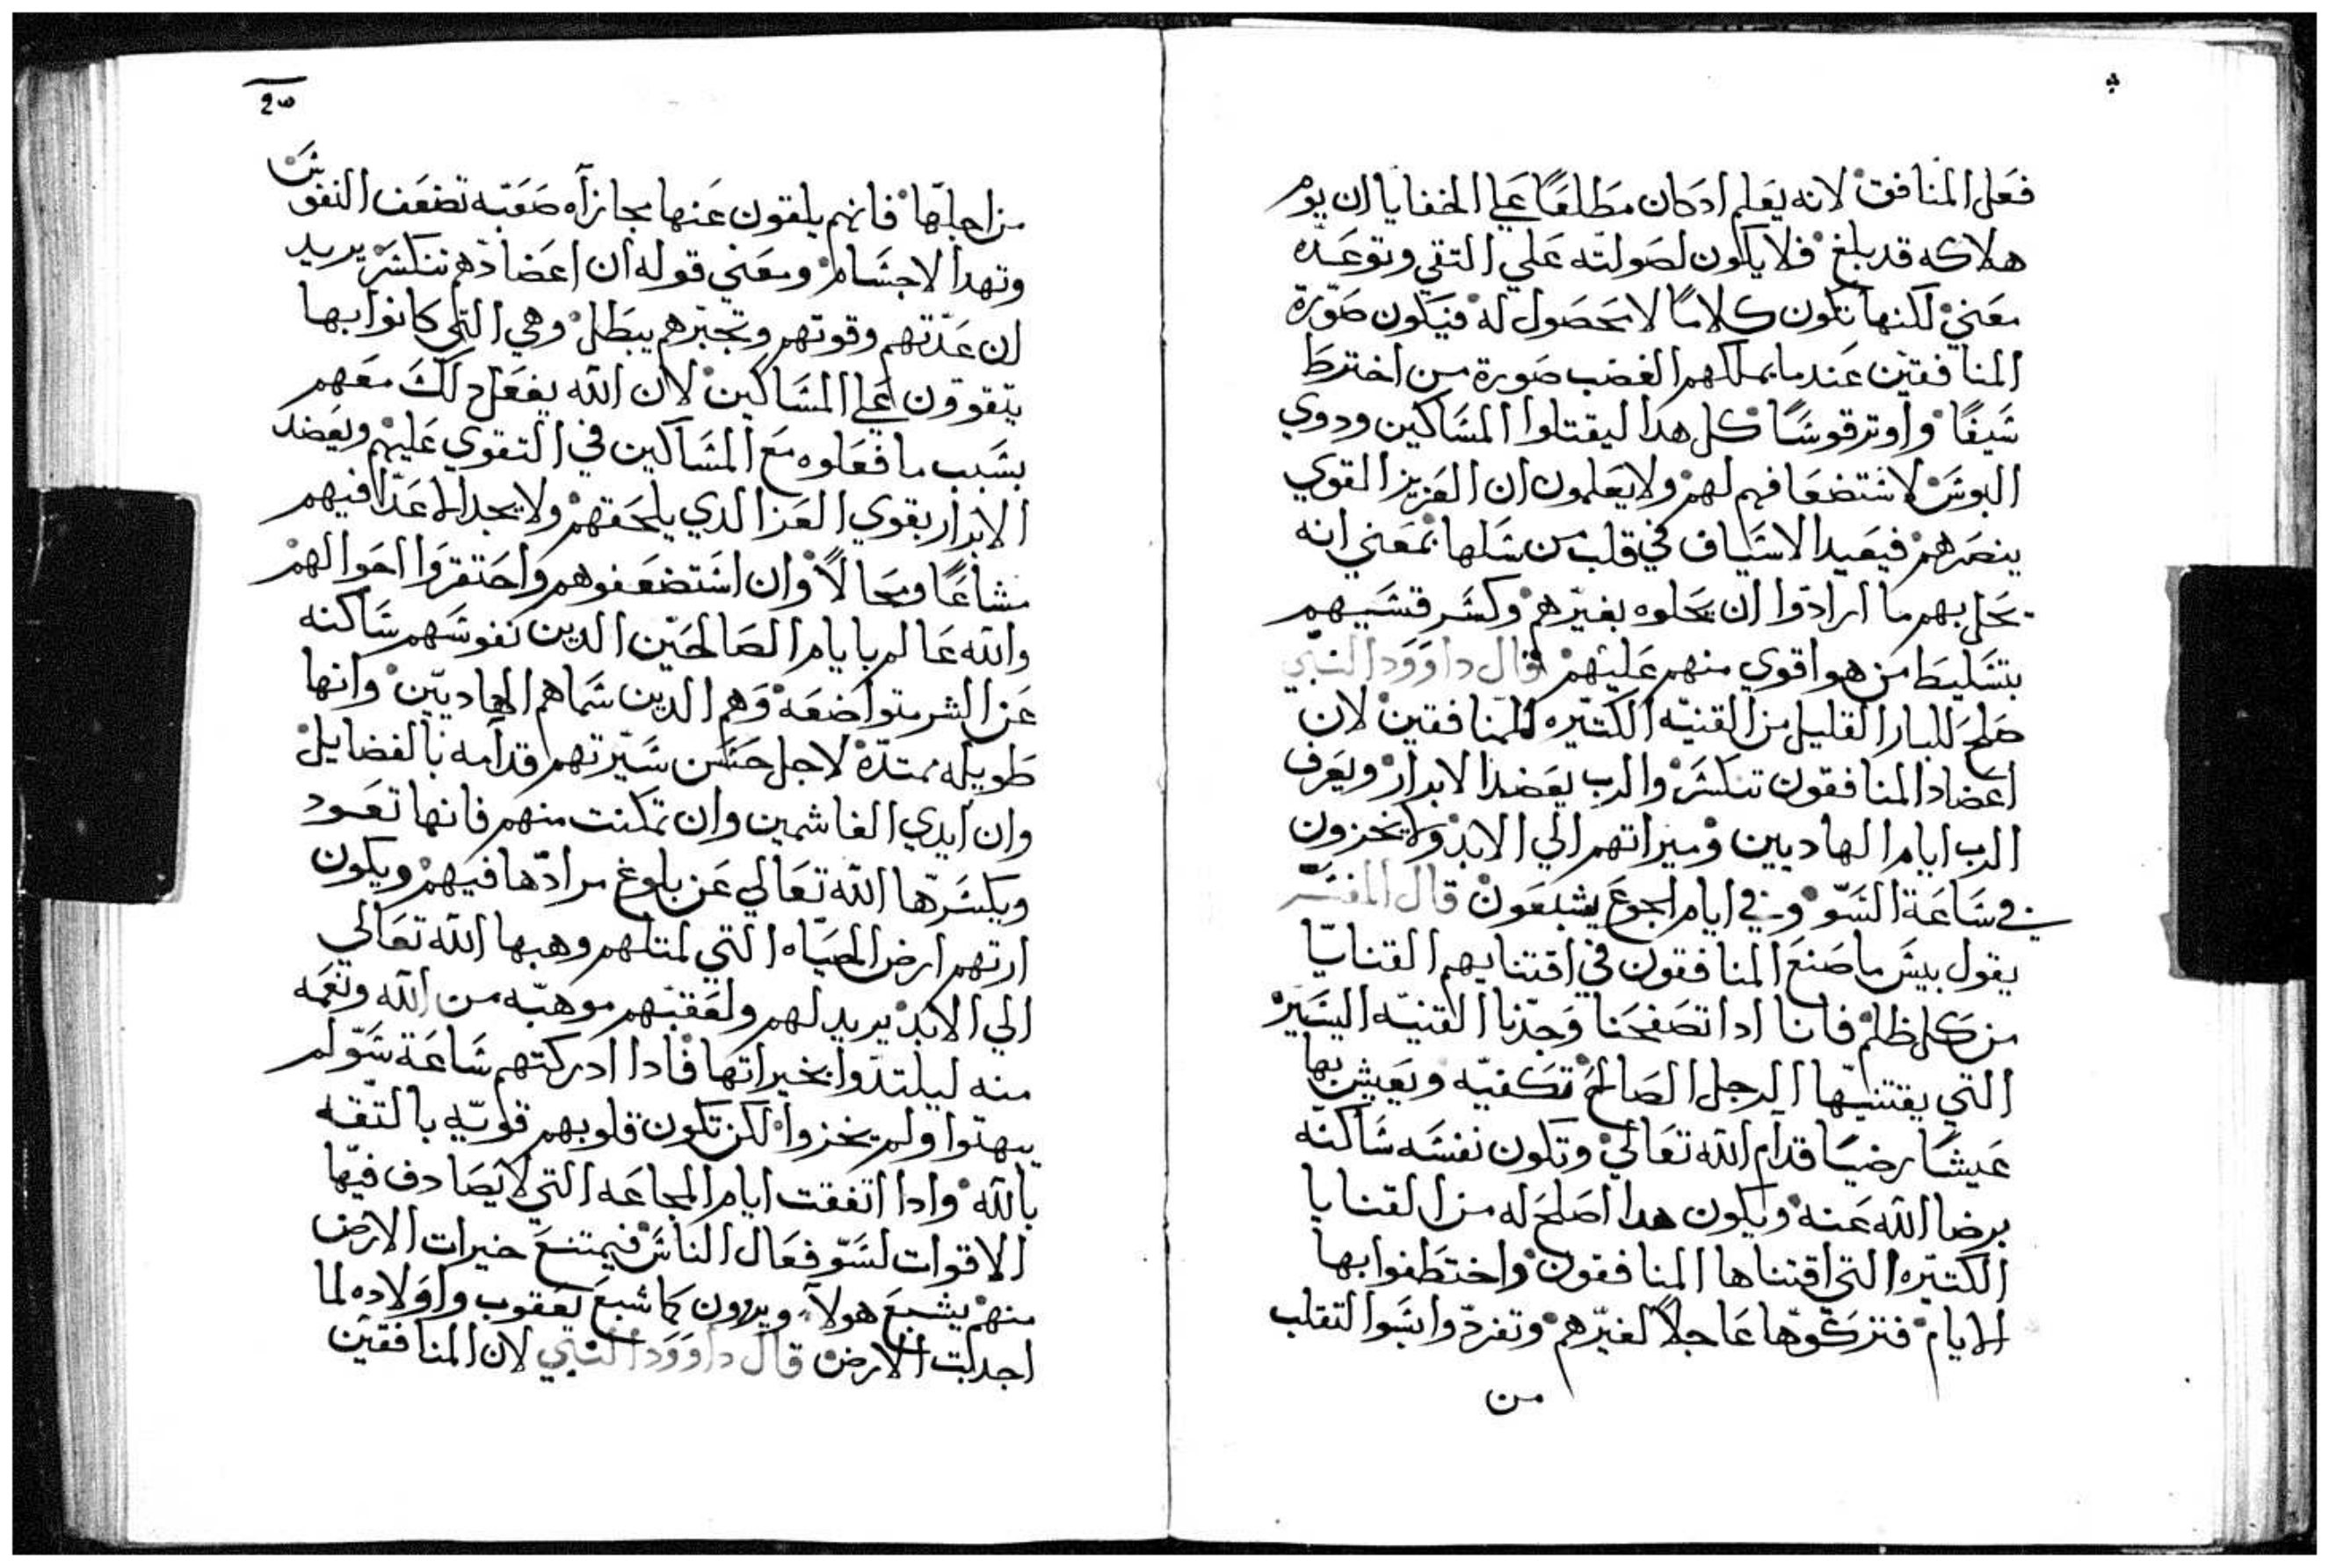 فعل المنافق لانه يعلم ادكان مطلعًا علي الخفايا ان يوم
هلاكه قد بلغ فلا يكون لصولته علي التقي وتوعده
معني لكنها تكون كلامًا لا محصول له فيكون صورة
المنافقين عندما يملكهم الغضب صورة من اخترط
شيفًا واوتر قوسًا كل هدا ليقتلوا المساكين ودوي
البوس لاستضعافهم لهم ولا يعلمون ان العزيز القوي
ينصرهم فيعيد الاسياف في قلب من سلها بمعني انه
يحل بهم ما ارادوا ان يحلوه بغيرهم وكسر قسيهم
بتسليط من هو اقوي منهم عليهم قال داوود النبي
صلح للبار القليل من القنيه الكتيره للمنافقين لان
اعضاد المنافقون تنكسر والرب يعضد الابرار ويعرف
الرب ايام الهاديين وميراتهم الي الابد ولا يخزون
في ساعة السو وفي ايام الجوع يشبعون قال المفسر
يقول بيس ما صنع المنافقون في اقتنايهم القنايا
من كل ظلم فانا ادا تصفحنا وجدنا القنيه اليسير
التي يقتنيها الرجل الصالح تكفيه ويعيش بها
عيشًا رضيًا قدام الله تعالي وتكون نفسه ساكنه
برضا الله عنه ويكون هدا اصلح له من القنايا
الكتيره التي اقتناها المنافقون واختطفوا بها
الايام فتركوها عاجلاً لغيرهم وتفردوا بسو التقلب
من
20
من اجلها فانهم يلقون عنها مجازاه صعبه تضعف النفوس
وتهد الاجسام ومعني قوله ان اعضادهم تنكسر يريد
ان عدتهم وقوتهم وتجبرهم يبطل وهي التي كانوا بها
يتقوون علي المساكين لان الله يفعل دلك معهم
بسبب ما فعلوه مع المساكين في التقوي عليهم ويعضد
الابرار بقوي العز الدي يلحقهم ولا يجد الاعدا فيهم
مساغًا ومجالاً وان استضعفوهم واحتقروا احوالهم
والله عالم بايام الصالحين الدين نفوسهم ساكنه
عن الشر متواضعه وهم الدين سماهم الهاديين وانها
طويله ممتدة لاجل حسن سيرتهم قدامه بالفضايل
وان ايدي الغاشمين وان تمكنت منهم فانها تعود
ويكسرها الله تعالي عن بلوغ مرادها فيهم ويكون
ارتهم ارض الحياه التي لمتلهم وهبها الله تعالي
الي الابد يريد لهم ولعقبهم موهبه من الله ونعمه
منه ليلتدوا بخيراتها فادا ادركتهم ساعة سو لم
يبهتوا ولم يخزوا لكن تكون قلوبهم قويه بالتقه
بالله وادا اتفقت ايام المجاعه التي لا يصادف فيها
الاقوات لسو فعال الناس فيمتنع خيرات الارض
منهم يشبع هولاء ويروون كما شبع يعقوب واولاده لما
اجدبت الارض قال داوود النبي لان المنافقين